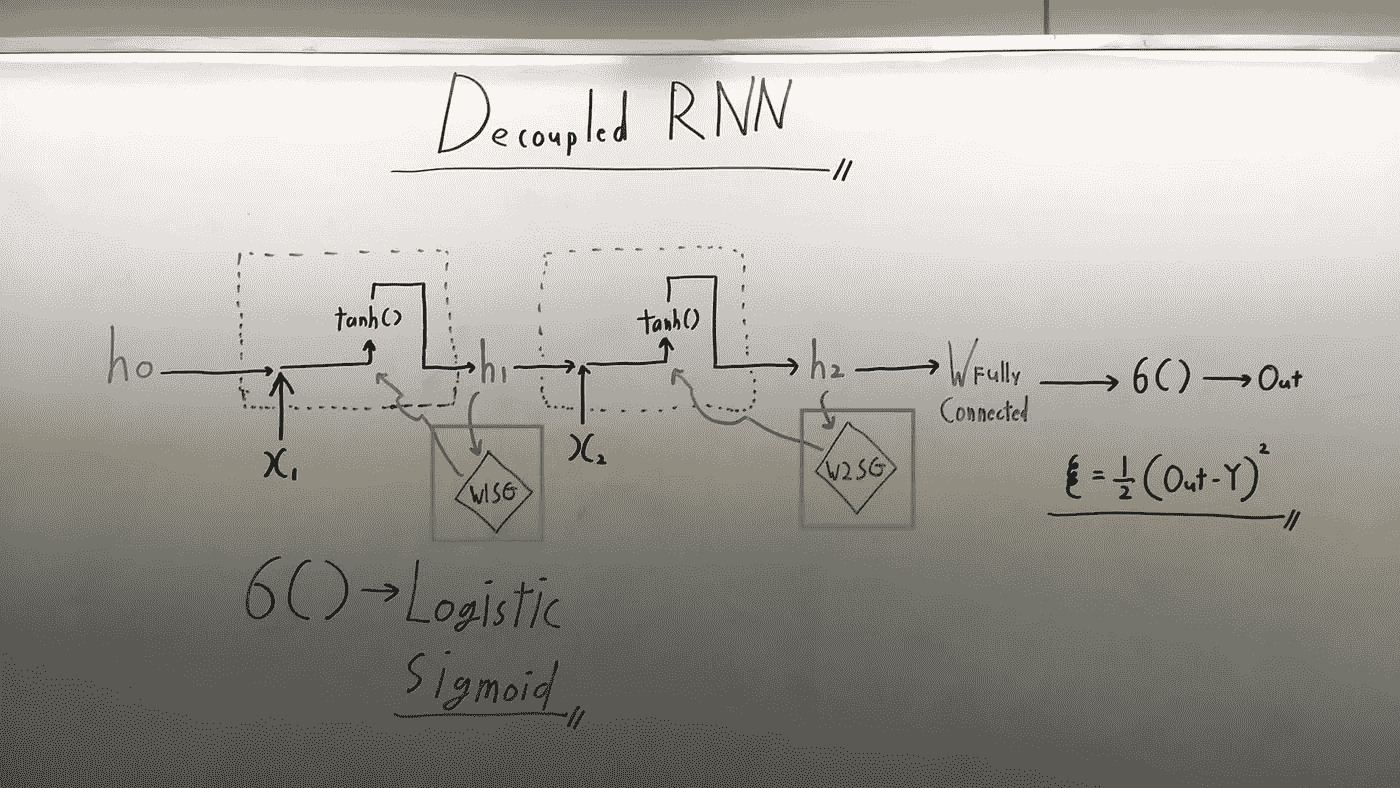 Decoupled RNN
tanh()
tanh()
h0
h1
h2
W Fully
Connected
6()
Out
x1
x2
W1SG
W2SG
ξ = 1/2 (Out-Y)²
6() → Logistic
Sigmoid